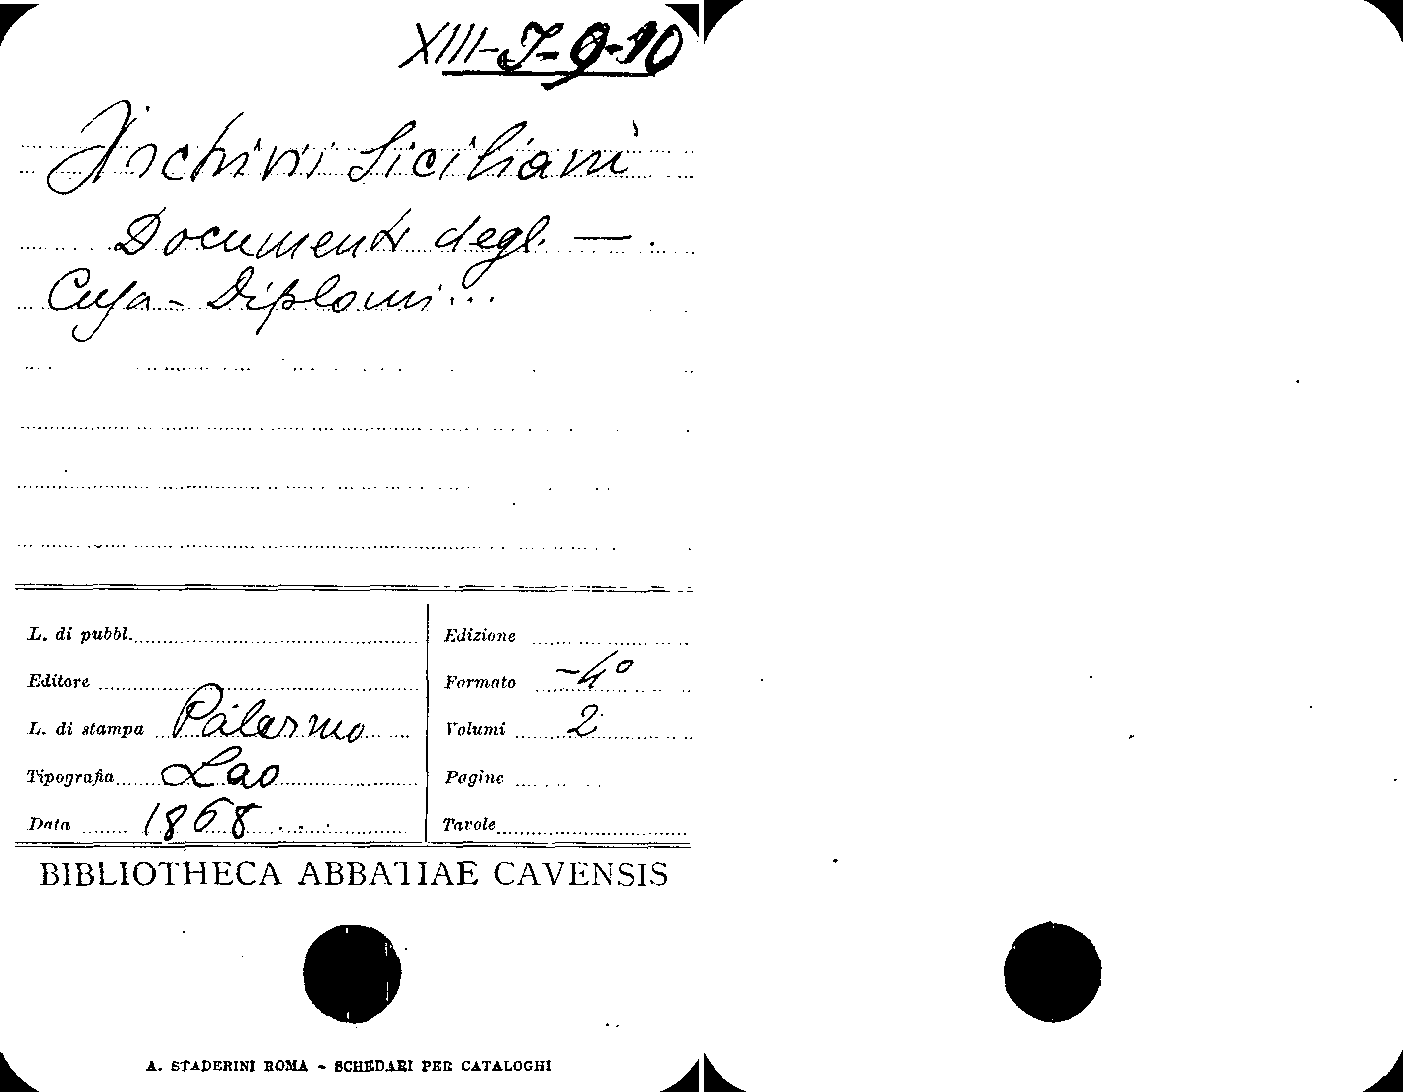 XIII-J-9-10
Archivi Siciliani
Documenti degli — .
Cusa - Diplomi...
L. di pubbl.
Edizione
Editore
Formato -4°
L. di stampa Palermo
Volumi 2
Tipografia Lao
Pagine
Data 1868
Tavole
BIBLIOTHECA ABBATIAE CAVENSIS
A. STADERINI ROMA - SCHEDARI PER CATALOGHI